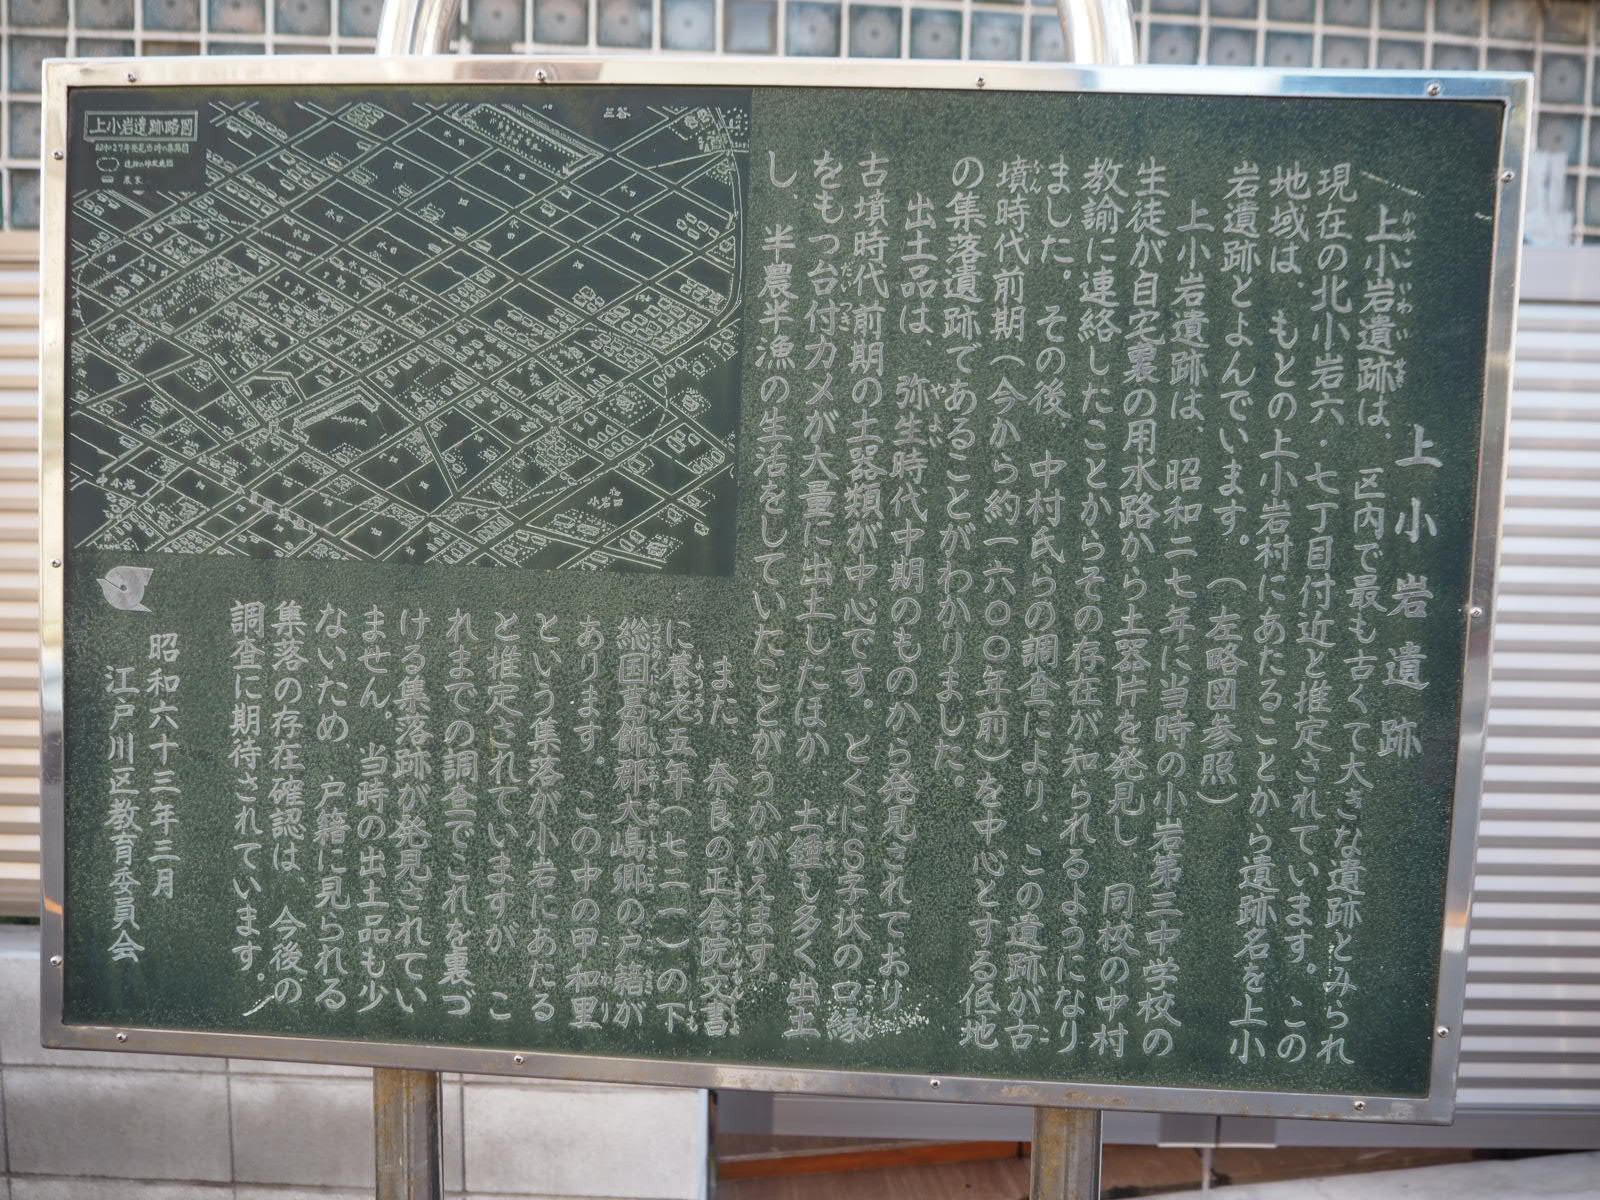 上小岩遺跡
上小岩遺跡は、区内で最も古くて大きな遺跡とみられ
現在の北小岩六・七丁目付近と推定されています。この
地域は、もとの上小岩村にあたることから遺跡名を上小
岩遺跡とよんでいます。（左略図参照）
上小岩遺跡は、昭和二七年に当時の小岩第三中学校の
生徒が自宅裏の用水路から土器片を発見し、同校の中村
教諭に連絡したことからその存在が知られるようになり
ました。その後、中村氏らの調査により、この遺跡が古
墳時代前期（今から約一六〇〇年前）を中心とする低地
の集落遺跡であることがわかりました。
出土品は、弥生時代中期のものから発見されており
古墳時代前期の土器類が中心です。とくにS字状の口縁
をもつ台付カメが大量に出土したほか、土錘も多く出土
し、半農半漁の生活をしていたことがうかがえます。
また、奈良の正倉院文書
に養老五年（七二一）の下
総国葛飾郡大嶋郷の戸籍が
あります。この中の甲和里
という集落が小岩にあたる
と推定されていますが、こ
れまでの調査でこれを裏づ
ける集落跡が発見されてい
ません。当時の出土品も少
ないため、戸籍に見られる
集落の存在確認は、今後の
調査に期待されています。
昭和六十三年三月
江戸川区教育委員会
上小岩遺跡略図
昭和27年発見当時の集落図
農家
三谷
中小岩